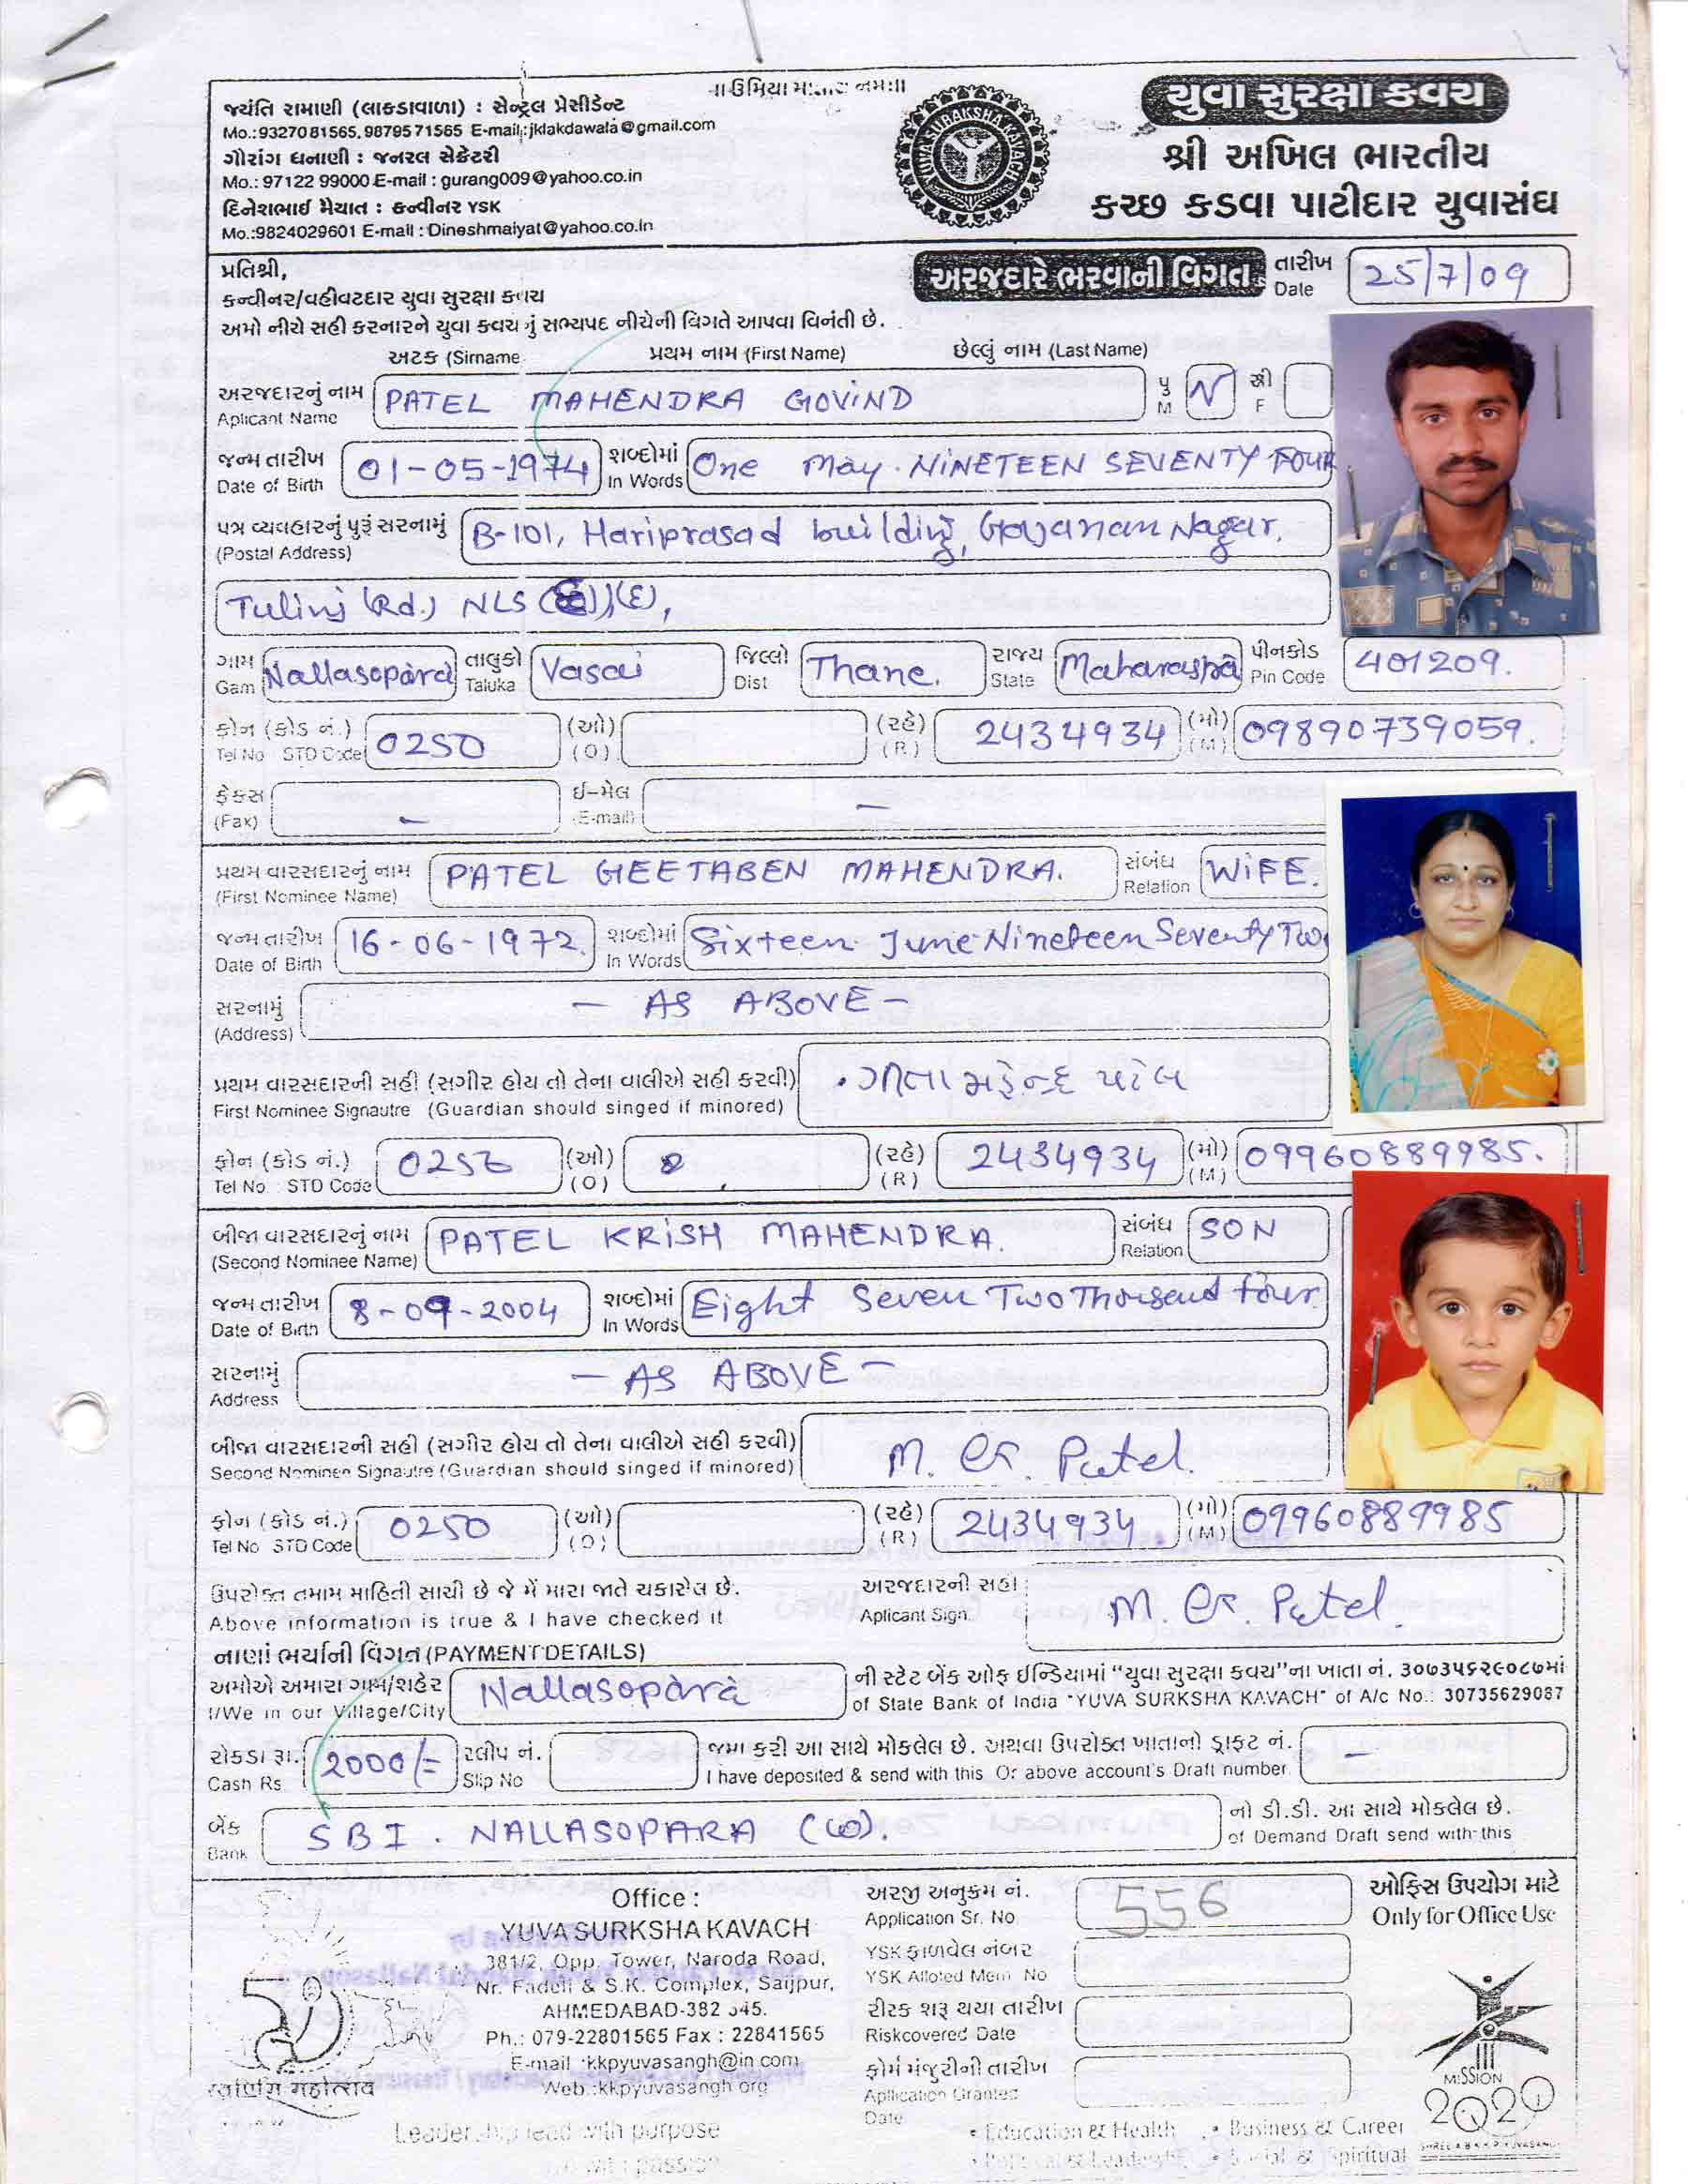 ॥ ઉમિયા માતાય નમઃ॥
જયંતિ રામાણી (લાકડાવાળા) : સેન્ટ્રલ પ્રેસીડેન્ટ
Mo.:9327081565, 9879571565 E-mail.:jklakdawala@gmail.com
ગૌરાંગ ધનાણી : જનરલ સેક્રેટરી
Mo.: 97122 99000 E-mail : gurang009@yahoo.co.in
દિનેશભાઈ મૈયાત : કન્વીનર YSK
Mo.:9824029601 E-mail : Dineshmaiyat@yahoo.co.in
YUVA SURAKSHA KAVACH
યુવા સુરક્ષા કવચ
શ્રી અખિલ ભારતીય
કચ્છ કડવા પાટીદાર યુવાસંઘ
પ્રતિશ્રી,
અરજદારે ભરવાની વિગત તારીખ Date 25/7/09
કન્વીનર/વહીવટદાર યુવા સુરક્ષા કવચ
અમો નીચે સહી કરનારને યુવા કવચ નું સભ્યપદ નીચેની વિગતે આપવા વિનંતી છે.
અટક (Sirname પ્રથમ નામ (First Name) છેલ્લું નામ (Last Name)
અરજદારનું નામ Aplicant Name PATEL MAHENDRA GOVIND પુ M સ્ત્રી F
જન્મ તારીખ Date of Birth 01-05-1974 શબ્દોમાં In Words One May. NINETEEN SEVENTY FOUR
પત્ર વ્યવહારનું પુરૂં સરનામું (Postal Address) B-101, Hariprasad building, Gajanan Nagar,
Tulinj (Rd.) NLS (E),
ગામ Gam Nallasopara તાલુકો Taluka Vasai જિલ્લો Dist Thane. રાજ્ય State પીનકોડ Pin Code 401209.
ફોન (કોડ નં.) Tel No STD Code 0250 (ઓ) (O) (રહે) (R) 2434934 (મો) (M) 09890739059.
ફેક્સ (Fax) – ઈ-મેલ (E-mail) –
પ્રથમ વારસદારનું નામ (First Nominee Name) PATEL GEETABEN MAHENDRA. સંબંધ Relation WIFE.
જન્મ તારીખ Date of Birth 16-06-1972. શબ્દોમાં In Words Sixteen June Nineteen Seventy Two
સરનામું (Address) – AS ABOVE –
પ્રથમ વારસદારની સહી (સગીર હોય તો તેના વાલીએ સહી કરવી) ગીતા મહેન્દ્ર પટેલ
First Nominee Signautre (Guardian should singed if minored)
ફોન (કોડ નં.) Tel No. STD Code 0250 (ઓ) (O) (રહે) (R) 2434934 (મો) (M) 09960889985.
બીજા વારસદારનું નામ (Second Nominee Name) PATEL KRISH MAHENDRA. સંબંધ Relation SON
જન્મ તારીખ Date of Birth શબ્દોમાં In Words Eight Seven Two Thousand four
સરનામું Address – AS ABOVE –
બીજા વારસદારની સહી (સગીર હોય તો તેના વાલીએ સહી કરવી) M. G. Patel.
Second Nominee Signautre (Guardian should singed if minored)
ફોન (કોડ નં.) Tel No STD Code 0250 (ઓ) (O) (રહે) (R) 2434934. (મો) (M) 09960889985
ઉપરોક્ત તમામ માહિતી સાચી છે જે મેં મારા જાતે ચકાસેલ છે. અરજદારની સહી
Above information is true & I have checked it Aplicant Sign. M. G. Patel.
નાણાં ભર્યાની વિગત (PAYMENT DETAILS)
અમોએ અમારા ગામ/શહેર Nallasopara ની સ્ટેટ બેંક ઓફ ઈન્ડિયામાં "યુવા સુરક્ષા કવચ"ના ખાતા નં. ૩૦૭૩૫૬૨૯૦૮૭માં
I/We in our Village/City of State Bank of India "YUVA SURKSHA KAVACH" of A/c No.: 30735629087
રોકડા રૂા. Cash Rs 2000/- સ્લીપ નં. Slip No જમા કરી આ સાથે મોકલેલ છે. અથવા ઉપરોક્ત ખાતાનો ડ્રાફ્ટ નં. –
I have deposited & send with this Or above account's Draft number.
બેંક Bank SBI. NALLASOPARA (W). નો ડી.ડી. આ સાથે મોકલેલ છે.
of Demand Draft send with this
Office :
YUVA SURKSHA KAVACH
381/2, Opp. Tower, Naroda Road,
Nr. Fadeli & S.K. Complex, Saijpur,
AHMEDABAD-382 345.
Ph.: 079-22801565 Fax : 22841565
E-mail :kkpyuvasangh@in.com
Web.:kkpyuvasangh.org
અરજી અનુક્રમ નં. Application Sr. No. 556
YSK ફાળવેલ નંબર YSK Alloted Mem No
રીસ્ક શરૂ થયા તારીખ Riskcovered Date
ફોર્મ મંજુરીની તારીખ Apllication Granted Date
ઓફિસ ઉપયોગ માટે
Only for Office Use
સ્વર્ણિમ મહોત્સવ
MISSION
2020
Leadership lead with purpose
• Education & Health • Business & Career
• Social & Spiritual